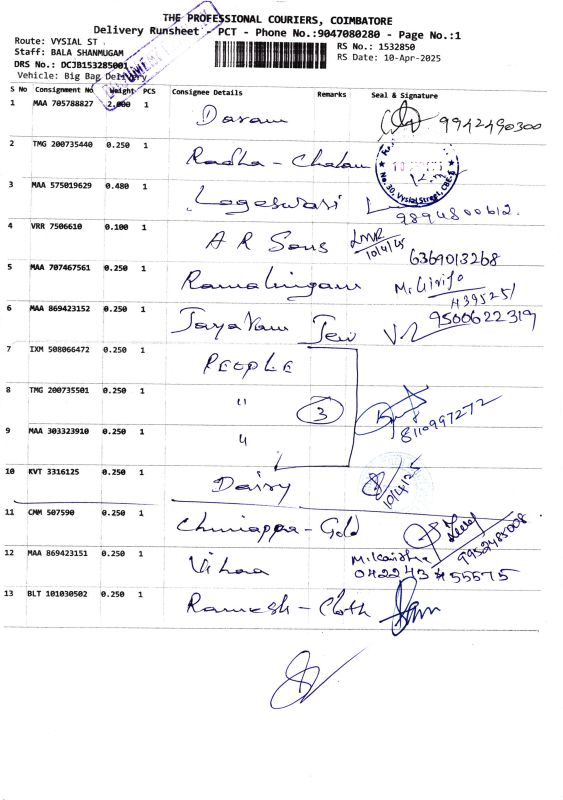 THE PROFESSIONAL COURIERS, COIMBATORE
Delivery Runsheet - PCT - Phone No.:9047080280 - Page No.:1
Route: VYSIAL ST
Staff: BALA SHANMUGAM
DRS No.: DCJB153285001
Vehicle: Big Bag Delivery
RS No.: 1532850
RS Date: 10-Apr-2025
S No Consignment No Weight PCS Consignee Details Remarks Seal & Signature
1 MAA 705788827 2.000 1 9942490300
2 TMG 200735440 0.250 1 Radha -
No. 30, Vysial Street, CBE-
3 MAA 575019629 0.480 1 Logeswari
9894800612.
4 VRR 7506610 0.100 1 A R Sons
10/4/25
6369013268
5 MAA 707467561 0.250 1 Ramalingam
6 MAA 869423152 0.250 1 9500622319
7 IXM 508066472 0.250 1 PEOPLE
8 TMG 200735501 0.250 1 " 3
8110997272
9 MAA 303323910 0.250 1 "
10 KVT 3316125 0.250 1 Dairy 10/4/25
11 CMM 507590 0.250 1 - Gold
12 MAA 869423151 0.250 1
13 BLT 101030502 0.250 1 Ramesh - Cloth